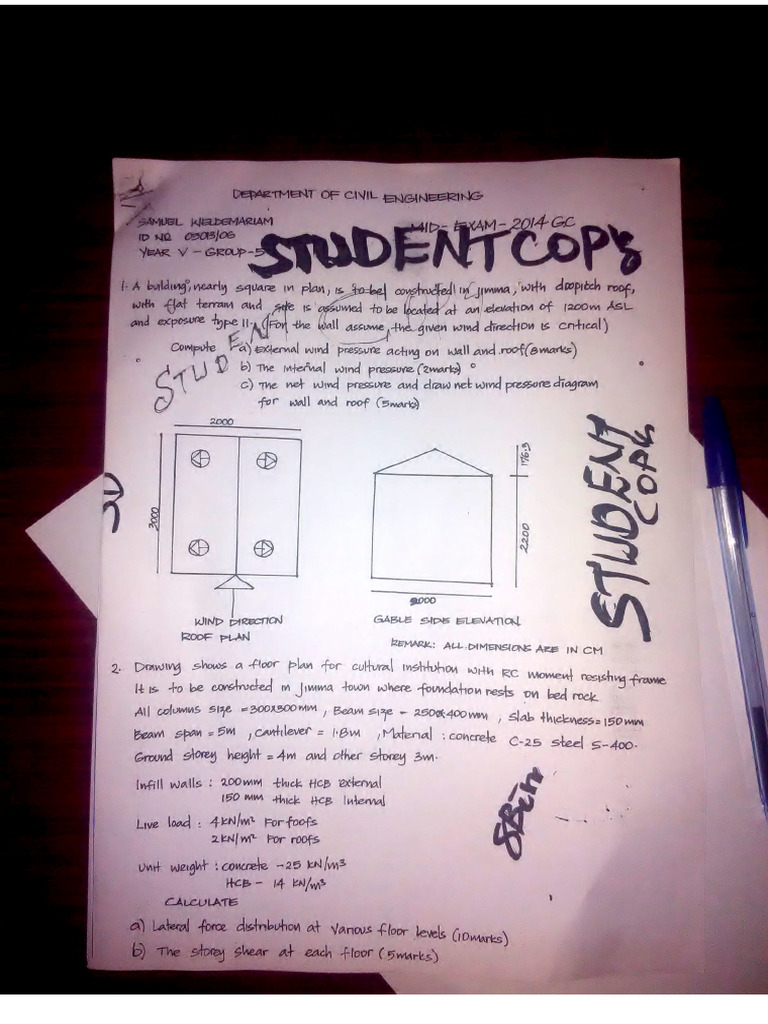 DEPARTMENT OF CIVIL ENGINEERING
SAMUEL WELDEMARIAM
MID-EXAM-2014 GC
ID NO 05013/06
YEAR V-GROUP-5
STUDENT COPY
1. A building, nearly square in plan, is to be constructed in Jimma, with duopitch roof,
with flat terrain and site is assumed to be located at an elevation of 1200m ASL
and exposure type II. (For the wall assume, the given wind direction is critical)
Compute a) External wind pressure acting on wall and roof (8marks)
b) The internal wind pressure (2marks)
c) The net wind pressure and draw net wind pressure diagram
for wall and roof (5marks)
STUDEN
2000
2000
WIND DIRECTION
ROOF PLAN
176.3
2200
2000
GABLE SIDE ELEVATION
REMARK: ALL DIMENSIONS ARE IN CM
STUDENT
COPY
2. Drawing shows a floor plan for cultural institution with RC moment resisting frame
It is to be constructed in Jimma town where foundation rests on bed rock.
All columns size = 300x300mm, Beam size - 250x400mm, Slab thickness = 150mm
Beam span = 5m, Cantilever = 1.8m, Material: concrete C-25 steel S-400.
Ground storey height = 4m and other storey 3m.
Infill walls: 200mm thick HCB external
150 mm thick HCB Internal
Live load: 4 KN/m² For foofs
2KN/m² For roofs
Unit weight: concrete - 25 KN/m³
HCB - 14 KN/m³
CALCULATE
a) Lateral force distribution at various floor levels (10marks)
b) The storey shear at each floor (5marks)